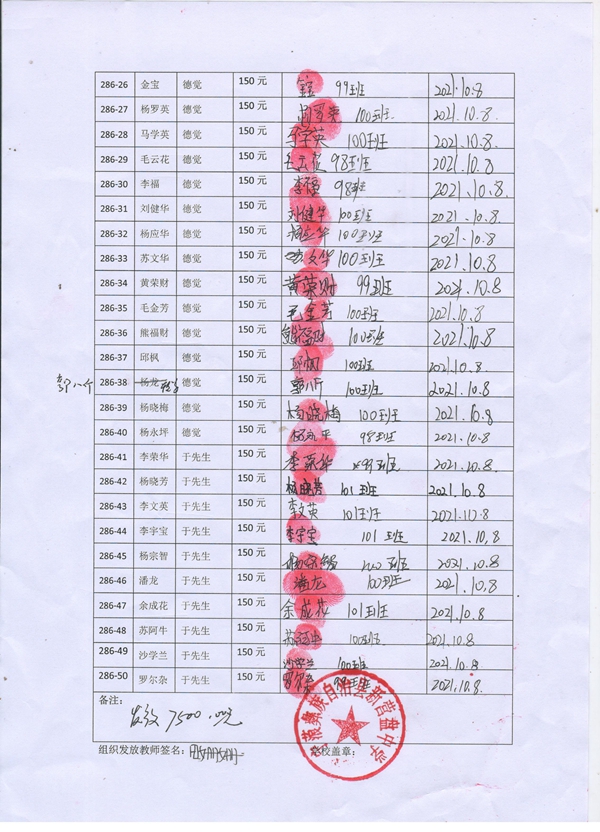 286-26 金宝 德觉 150 元 金宝 99班 2021.10.8
286-27 杨罗英 德觉 150 元 杨罗英 100班 2021.10.8.
286-28 马学英 德觉 150 元 马学英 100班 2021.10.8.
286-29 毛云花 德觉 150 元 毛云花 98班 2021.10.8
286-30 李福 德觉 150 元 李福 98班 2021.10.8.
286-31 刘健华 德觉 150 元 刘健华 100班 2021.10.8
286-32 杨应华 德觉 150 元 杨应华 100班 2021.10.8
286-33 苏文华 德觉 150 元 苏文华 100班 2021.10.8
286-34 黄荣财 德觉 150 元 黄荣财 99班 2021.10.8
286-35 毛金芳 德觉 150 元 毛金芳 100班 2021.10.8
286-36 熊福财 德觉 150 元 熊福财 100班 2021.10.8
286-37 邱枫 德觉 150 元 邱枫 100班 2021.10.8
286-38 杨龙 德觉 150 元 100班 2021.10.8
286-39 杨晓梅 德觉 150 元 杨晓梅 100班 2021.10.8
286-40 杨永坪 德觉 150 元 98班 2021.10.8
286-41 李荣华 于先生 150 元 李荣华 99班 2021.10.8.
286-42 杨晓芳 于先生 150 元 杨晓芳 101班 2021.10.8
286-43 李文英 于先生 150 元 李文英 101班 2021.10.8
286-44 李宇宝 于先生 150 元 李宇宝 101班 2021.10.8
286-45 杨宗智 于先生 150 元 班 2021.10.8
286-46 潘龙 于先生 150 元 潘龙 100班 2021.10.8
286-47 余成花 于先生 150 元 余成花 101班 2021.10.8
286-48 苏阿牛 于先生 150 元 苏阿牛 100班 2021.10.8
286-49 沙学兰 于先生 150 元 沙学兰 100班 2021.10.8
286-50 罗尔杂 于先生 150 元 罗尔杂 99班 2021.10.8
备注：
发放 7500.00元
组织发放教师签名： 学校盖章：
彝族自治县新营盘中学